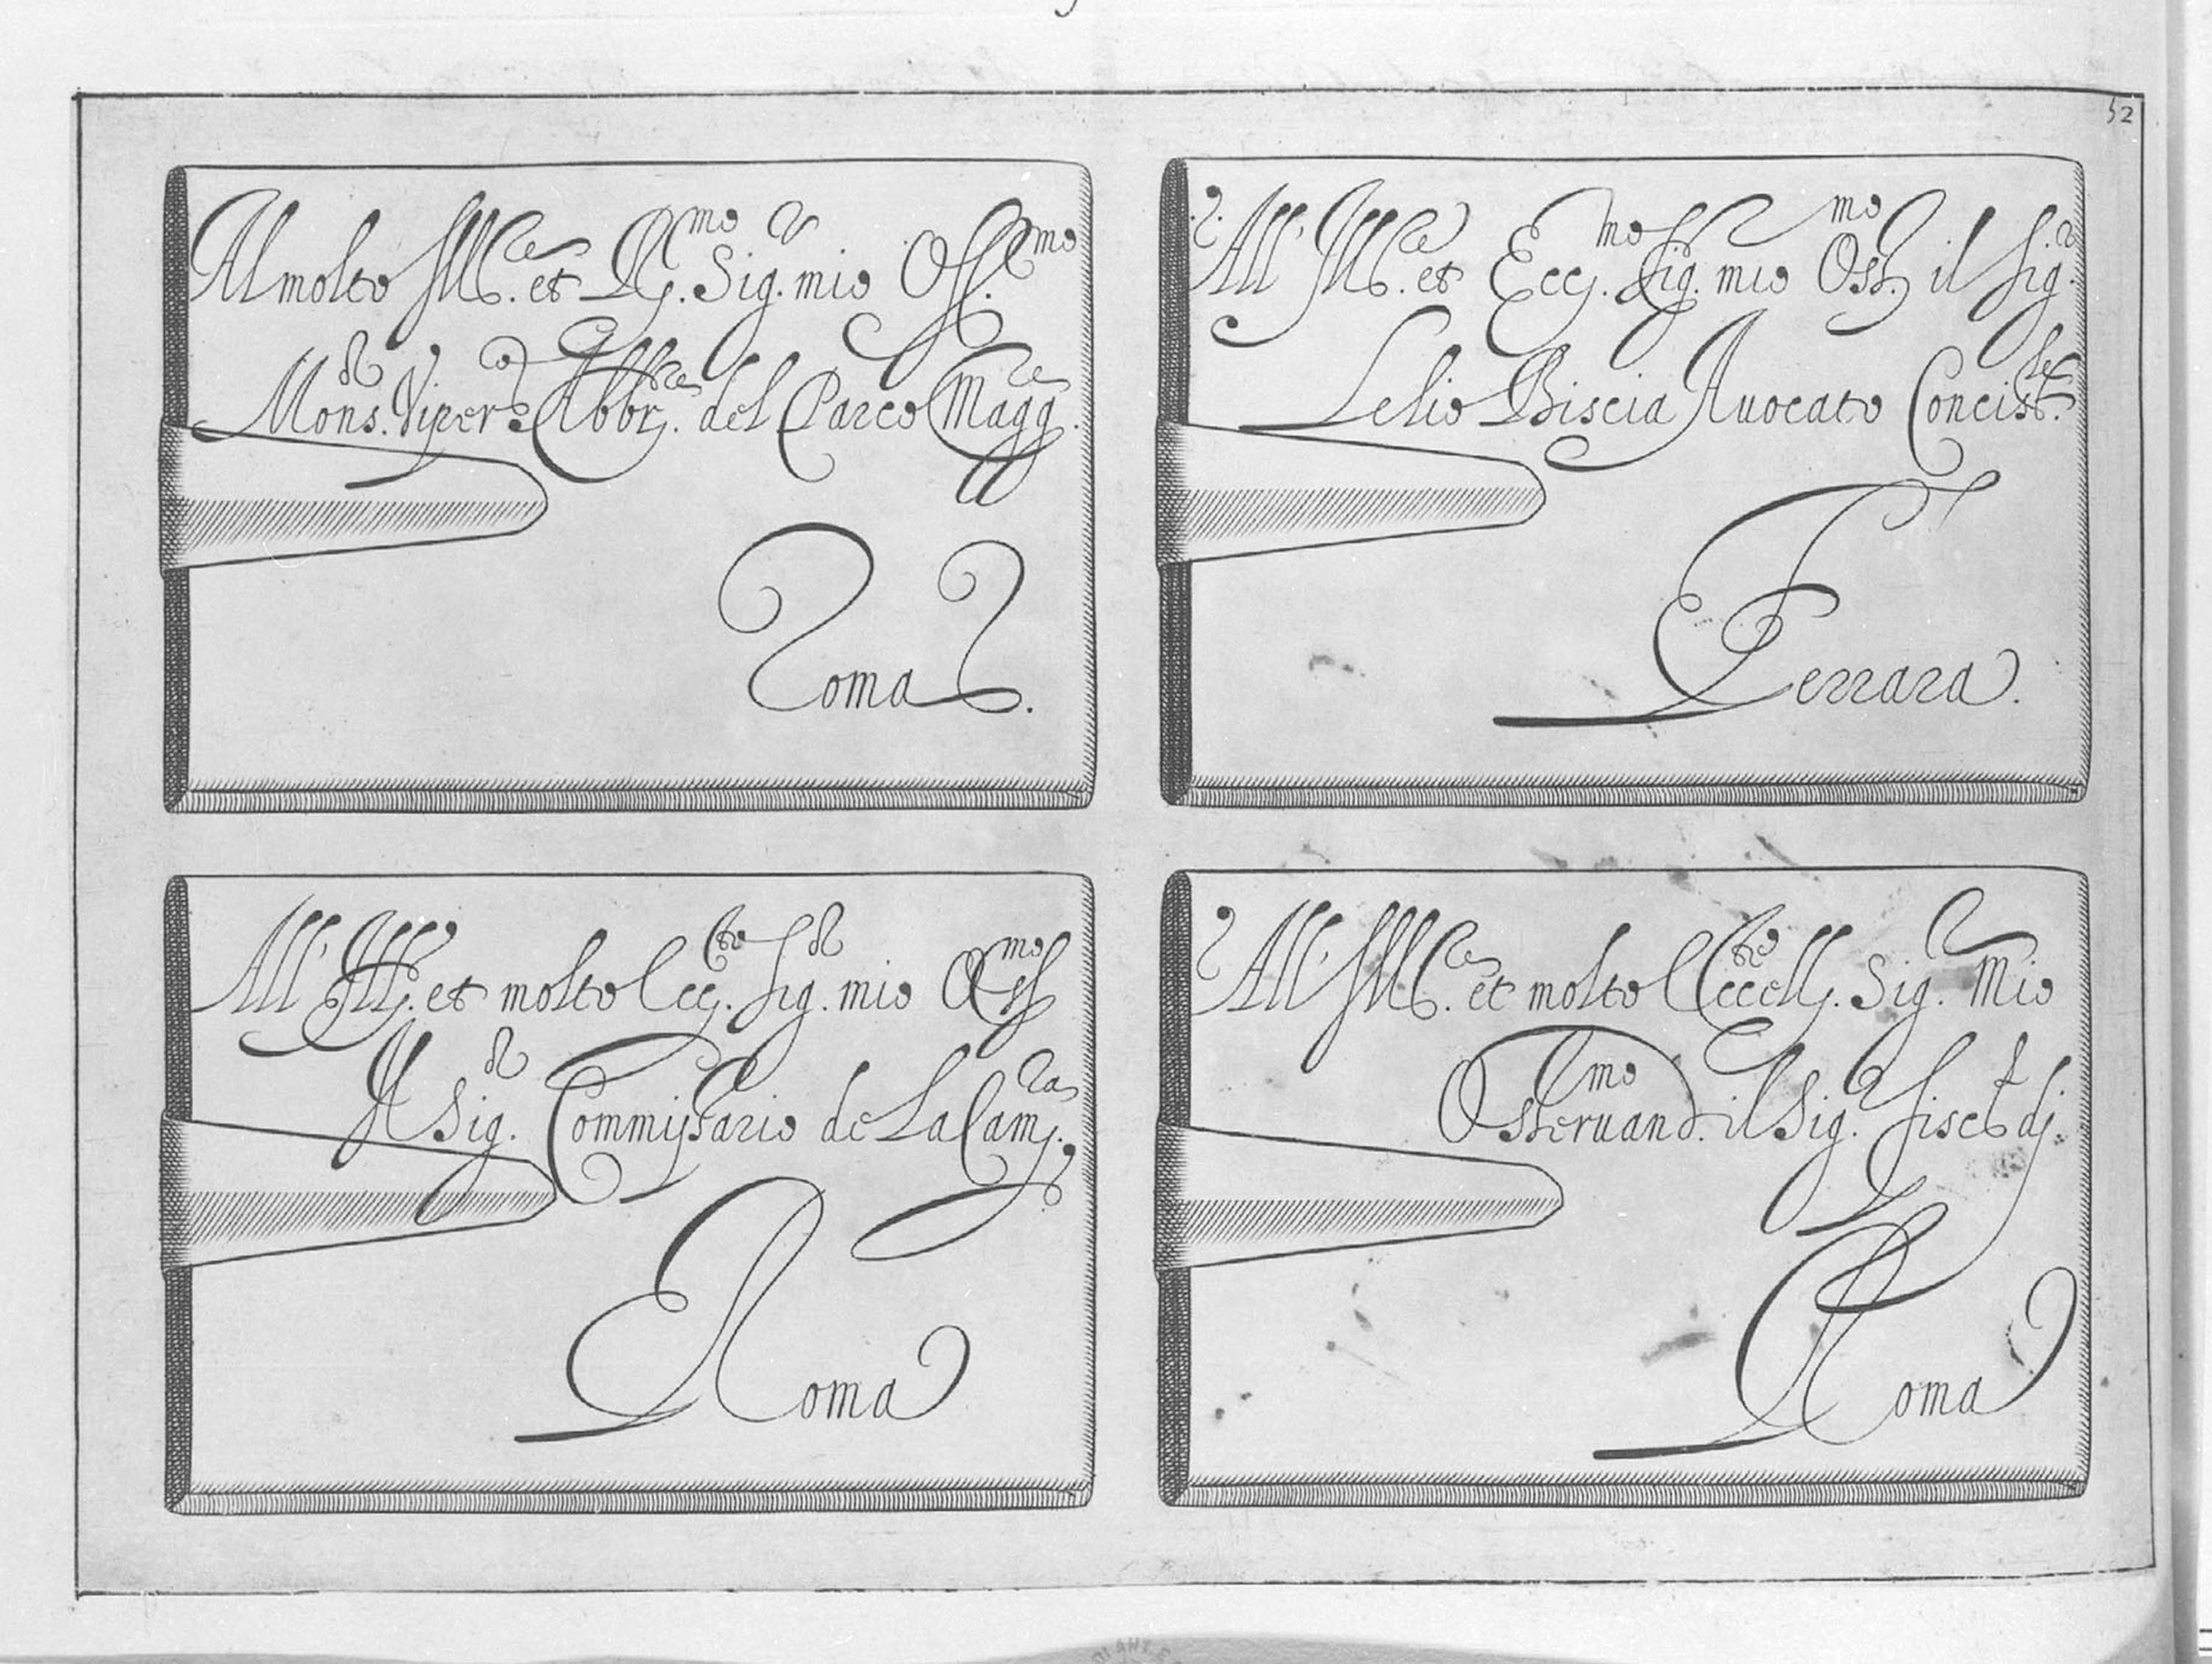 52
Al molto Ill.re et R.mo Sig.r mio Oss.mo
Mons.r Vipera Abbr.re del Parco Magg.re
Roma.
All' Ill.re et Ecc.mo Sig.r mio Oss.mo il Sig.r
Lelio Biscia Auocato Concist.le
Ferrara.
All' Ill.re et molto Ecc.te Sig.r mio Oss.mo
Il Sig.r Commissario de La Cam.ra
Roma
All' Ill.re et molto Eccell.te Sig.r Mio
Osseruand.mo il Sig.r Fisc.l di
Roma